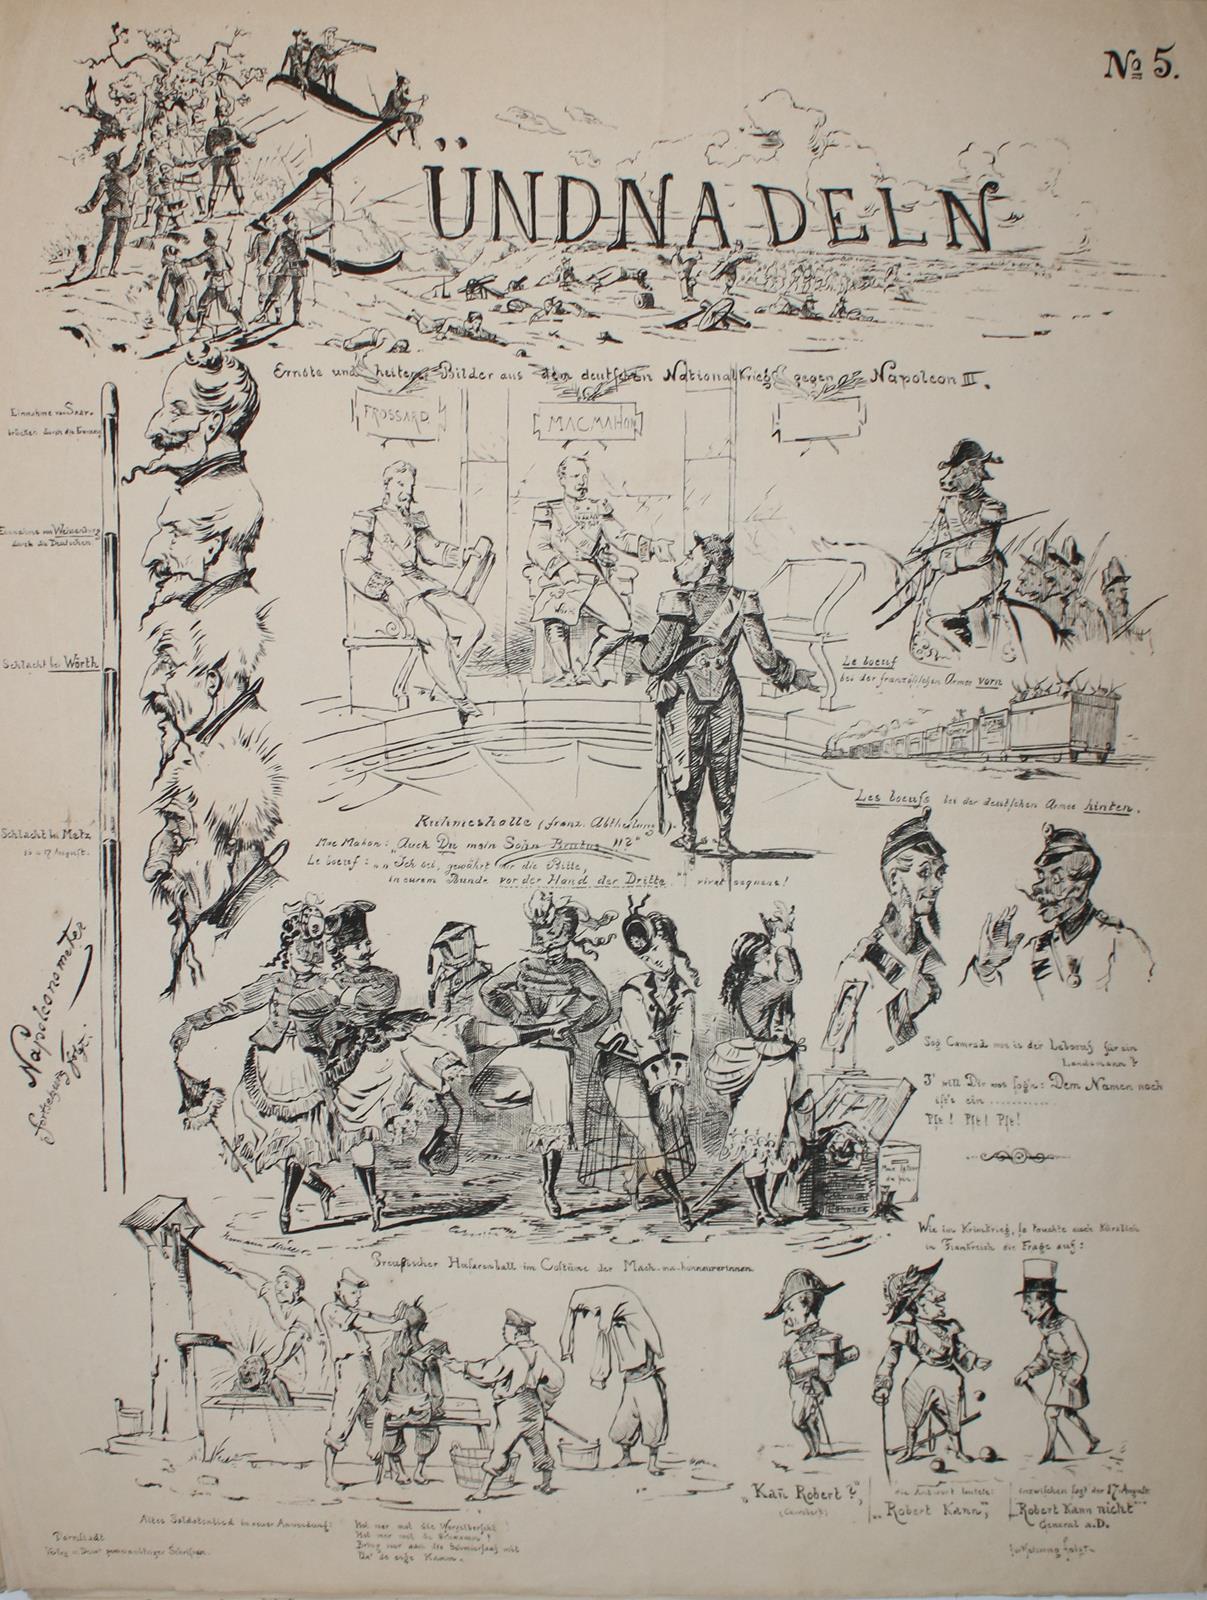 No 5.
ZÜNDNADELN
Ernste und heitere Bilder aus dem deutschen Nationalkrieg gegen Napoleon III.
Einnahme von Saar-
brücken durch die Franzosen
Einnahme von Weissenburg
durch die Deutschen.
Schlacht bei Wörth
Schlacht bei Metz
16 u 17 August.
Napoleonsmeter
Fortsetzung folgt.
FROSSARD
MACMAHON
Le boeuf
bei der französischen Armee vorn
Les boeufs bei der deutschen Armee hinten.
Ruhmeshalle (franz. Abtheilung).
Mac Mahon: "Auch Du mein Sohn Brutus"?
Le boeuf: "Ich sei, gewährt mir die Bitte,
in eurem Bunde vor der Hand der Dritte." vivat sequens!
Sag Camrad was is der Leboeuf für ein
Landsmann?
I' will Dir was sag'n: Dem Namen nach
ist's ein ............
Pst! Pst! Pst!
Preußischer Husarenball im Costüme der Mach-ma-honneurerinnen.
Wie im Krimkrieg, so tauchte auch kürzlich
in Frankreich die Frage auf:
"Kan̄ Robert?"
(Canrobert)
die Antwort lautete:
"Robert Kann",
inzwischen sagt der 17. August:
"Robert Kann nicht"
General a.D.
Fortsetzung folgt.
Altes Soldatenlied in neuer Anwendung:
Hol mer mal die
Hol mer mal die
Bring mer aach die mit
Un' de enge Kamm.
Darmstadt
Verlag u. Druck